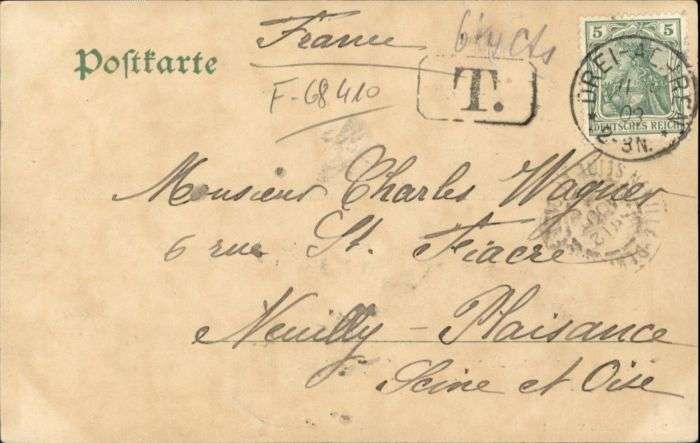 France
Postkarte
F-68410
T.
5 5
DREI-AEHREN
03
DEUTSCHES REICH
Monsieur Charles Wagner
6 rue St. Fiacre
Neuilly-Plaisance
Seine et Oise